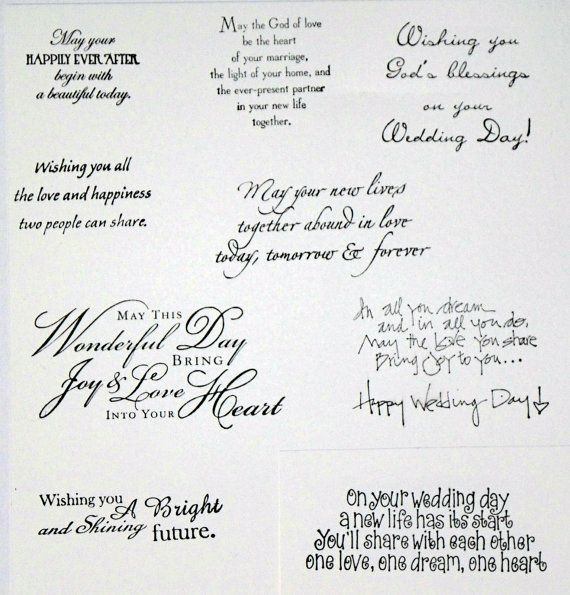 May your
HAPPILY EVER AFTER
begin with
a beautiful today.
May the God of love
be the heart
of your marriage,
the light of your home, and
the ever-present partner
in your new life
together.
Wishing you
God's blessings
on your
Wedding Day!
Wishing you all
the love and happiness
two people can share.
May your new lives
together abound in love
today, tomorrow & forever
MAY THIS
Wonderful Day
BRING
Joy & Love
INTO YOUR Heart
In all you dream
and in all you do,
May the love you share
Bring Joy to you...
Happy Wedding Day
Wishing you A Bright
and Shining future.
On your wedding day
a new life has its start
You'll share with each other
one love, one dream, one heart